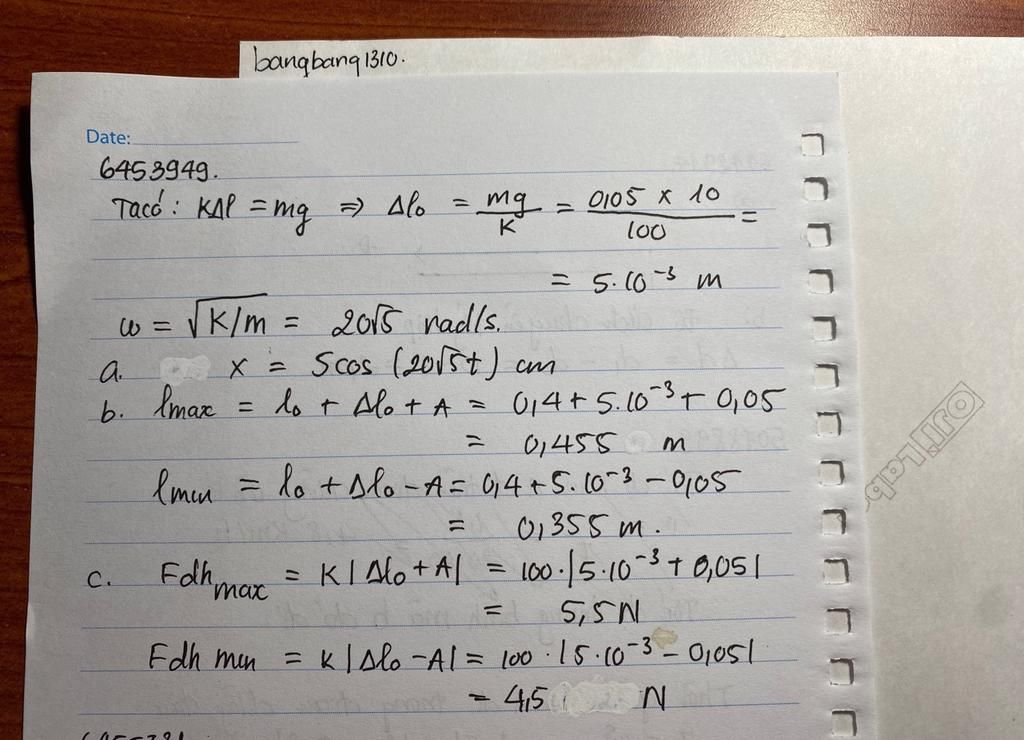 bangbang1310.
Date:
6453949.
Ta có: KΔl = mg => Δl₀ = mg/K = 0,05 x 10/100 =
= 5.10⁻³ m
ω = √K/m = 20√5 rad/s.
a. x = 5cos (20√5t) cm
b. lmax = l₀ + Δl₀ + A = 0,4 + 5.10⁻³ + 0,05
= 0,455 m
lmin = l₀ + Δl₀ - A = 0,4 + 5.10⁻³ - 0,05
= 0,355 m.
c. Fdh max = K|Δl₀ + A| = 100.|5.10⁻³ + 0,05|
= 5,5 N
Fdh min = K|Δl₀ - A| = 100.|5.10⁻³ - 0,05|
= 4,5 N